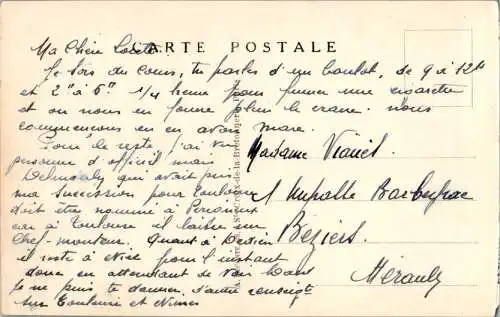 CARTE POSTALE
Ma Chère
Je sors du cours, tu parles d'un boulot, de 9 à 12h
et 2h à 6h 1/4 heure pour fumer une cigarette
et on nous en fourre plein le crane. nous
commencons en en avoir marre.
Pour le reste j'ai vu
personne d'officiel mais
qui avait pris
ma succession pour Toulouse
doit être nommé à
car à Toulouse il
Chef-monteur. Quant à
il reste à pour l'instant
donc en attendant de voir
Je ne puis te donner d'autre
sur Toulouse et Nimes
Madame
1 Impasse Barbeyrac
Béziers
Hérault